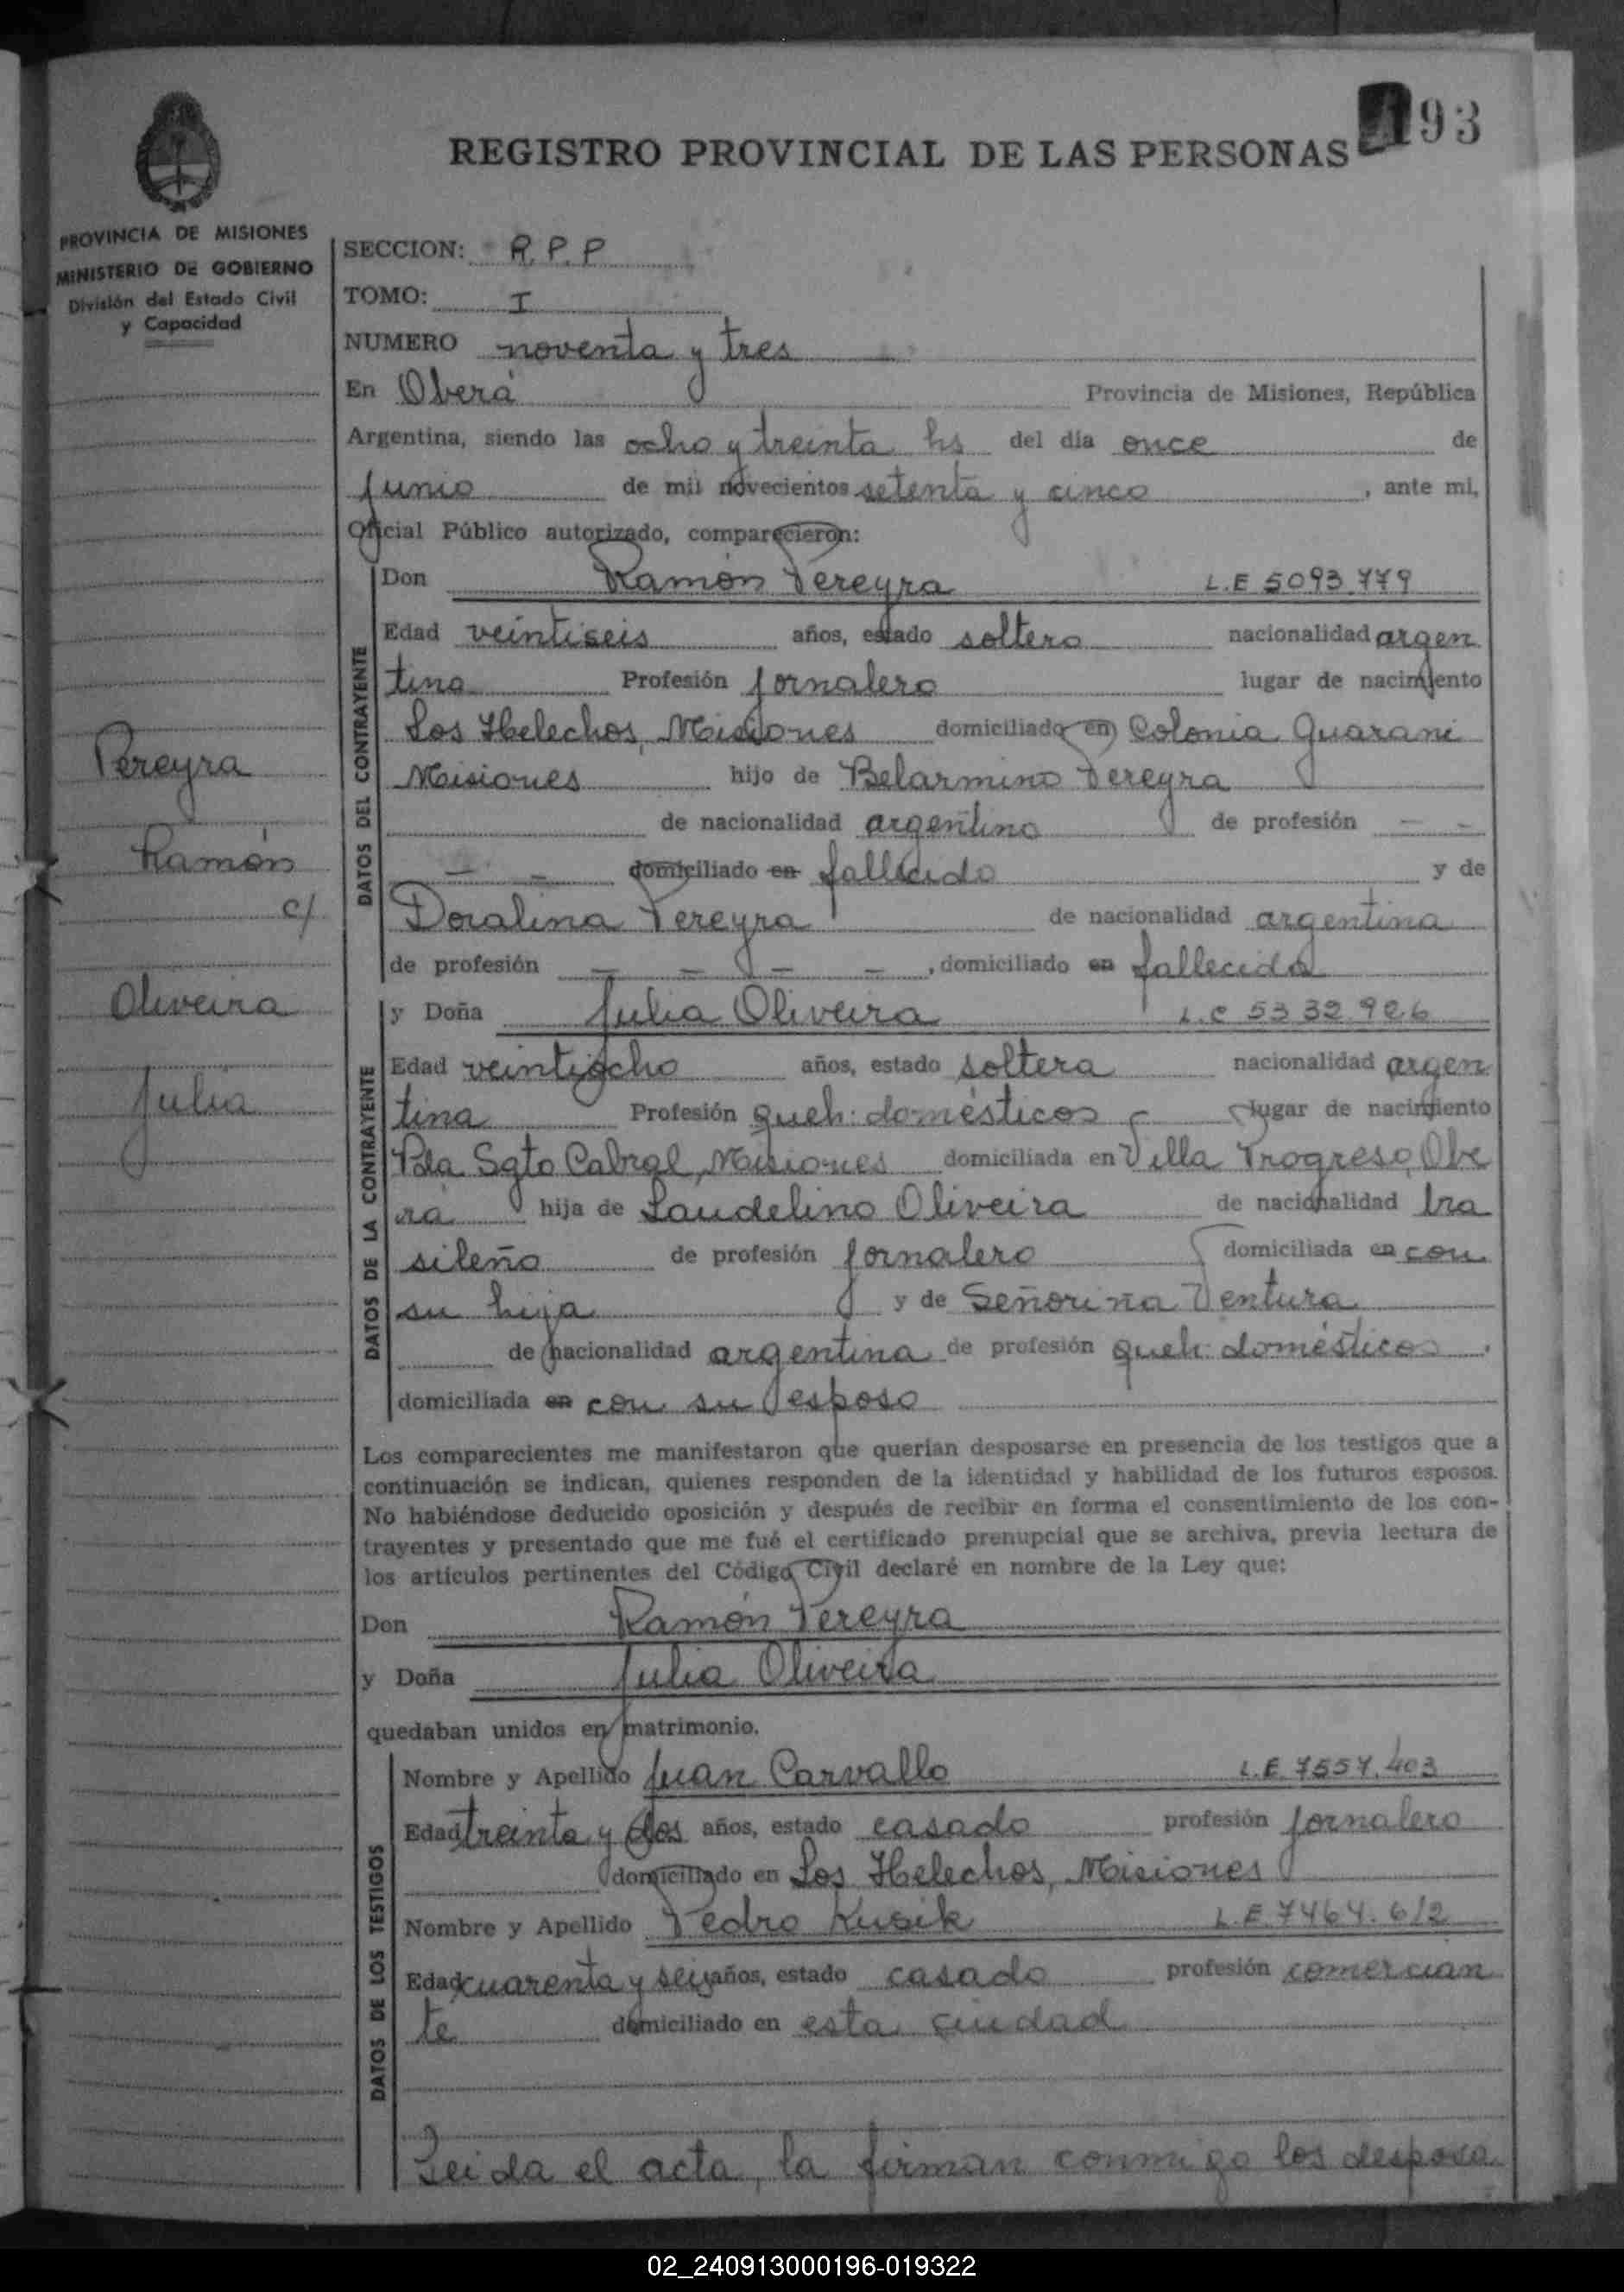 93
REGISTRO PROVINCIAL DE LAS PERSONAS
PROVINCIA DE MISIONES
MINISTERIO DE GOBIERNO
División del Estado Civil
y Capacidad
SECCION: R.P.P
TOMO: I
NUMERO noventa y tres
En Oberá Provincia de Misiones, República
Argentina, siendo las ocho y treinta hs del día once de
Junio de mil novecientos setenta y cinco, ante mi,
Oficial Público autorizado, comparecieron:
DATOS DEL CONTRAYENTE
Don Ramón Pereyra L.E 5093.779
Edad veintiseis años, estado soltero nacionalidad argen
tina Profesión Jornalero lugar de nacimiento
Los Helechos, Misiones domiciliado en Colonia Guaraní
Misiones hijo de Belarmino Pereyra
de nacionalidad argentino de profesión - -
- - domiciliado en fallecido y de
Doralina Pereyra de nacionalidad argentina
de profesión - - - -, domiciliado en fallecida
Pereyra
Ramón
c/
Oliveira
Julia
DATOS DE LA CONTRAYENTE
y Doña Julia Oliveira L.C 5332.926
Edad veintiocho años, estado soltera nacionalidad argen
tina Profesión queh: domésticos lugar de nacimiento
Pda Sgto Cabral, Misiones domiciliada en Villa Progreso, Obe
rá hija de Laudelino Oliveira de nacionalidad bra
sileño de profesión Jornalero domiciliada en con
su hija y de Señorina Ventura
de nacionalidad argentina de profesión queh: domésticos.
domiciliada en con su esposo
Los comparecientes me manifestaron que querían desposarse en presencia de los testigos que a
continuación se indican, quienes responden de la identidad y habilidad de los futuros esposos.
No habiéndose deducido oposición y después de recibir en forma el consentimiento de los con-
trayentes y presentado que me fué el certificado prenupcial que se archiva, previa lectura de
los artículos pertinentes del Código Civil declaré en nombre de la Ley que:
Don Ramón Pereyra
y Doña Julia Oliveira
quedaban unidos en matrimonio.
DATOS DE LOS TESTIGOS
Nombre y Apellido Juan Carvallo L.E. 7557.403
Edad treinta y dos años, estado casado profesión Jornalero
domiciliado en Los Helechos, Misiones
Nombre y Apellido Pedro Kusik L.E. 7464.612
Edad cuarenta y seis años, estado casado profesión comercian
te domiciliado en esta ciudad
Leida el acta, la firman conmigo los desposa
02_240913000196-019322